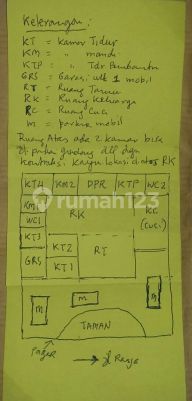 Keterangan :
KT = Kamar Tidur
KM = " mandi
KTP = " Tdr Pembantu
GRS = Garasi utk 1 mobil
RT = Ruang Tamu
RK = Ruang Keluarga
RC = Ruang Cuci
M = parkir mobil
Ruang Atas ada 2 kamar bisa
di
gudang dll dgn
kontruksi kayu lokasi diatas RK
KT4 KM2 DPR KTP WC2
KM
RK
WC1
RC
(CUCI)
KT3
KT2
RT
GRS
KT1
M
M
M
TAMAN
Pagar
Jl Raya
rumah123